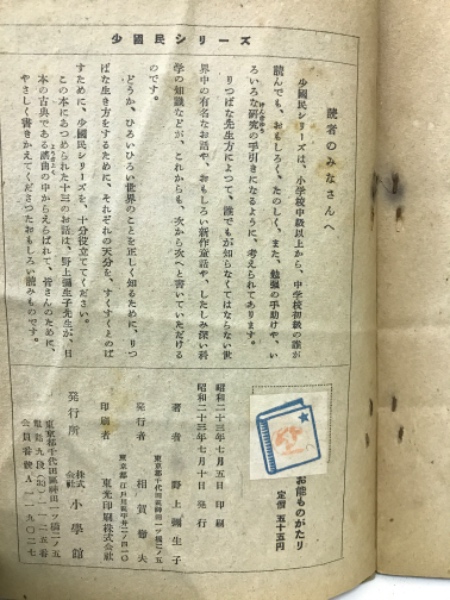 少國民シリーズ
読者のみなさんへ
少國民シリーズは、小学校中級以上から、中学校初級の誰が
読んでも、おもしろく、たのしく、また、勉強の手助けや、い
ろいろな研究の手引きになるように、考えられてあります。
りつぱな先生方によつて、誰でもが知らなくてはならない世
界中の有名なお話や、おもしろい新作童話や、したしみ深い科
学の知識などが、これからも、次から次へと書いていただける
のです。
どうか、ひろいひろい世界のことを正しく知るために、りつ
ぱな生き方をするために、それぞれの天分を、すくすくとのば
すために、少國民シリーズを、十分役立ててください。
この本にあつめられた十三のお話は、野上彌生子先生が、日
本の古典である謠曲の中からえらばれて、皆さんのために、
やさしく書きかえてくださつたおもしろい読みものです。
お能ものがたり
定價 五十五円
昭和二十三年七月五日 印刷
昭和二十三年七月十日 発行
著者 野上彌生子
東京都千代田區神田一ツ橋二ノ五
発行者 相賀 夫
印刷者 東光印刷株式会社
発行所 株式会社 小學館
東京都千代田區神田一ツ橋二ノ五
會員番號A一一九〇二七